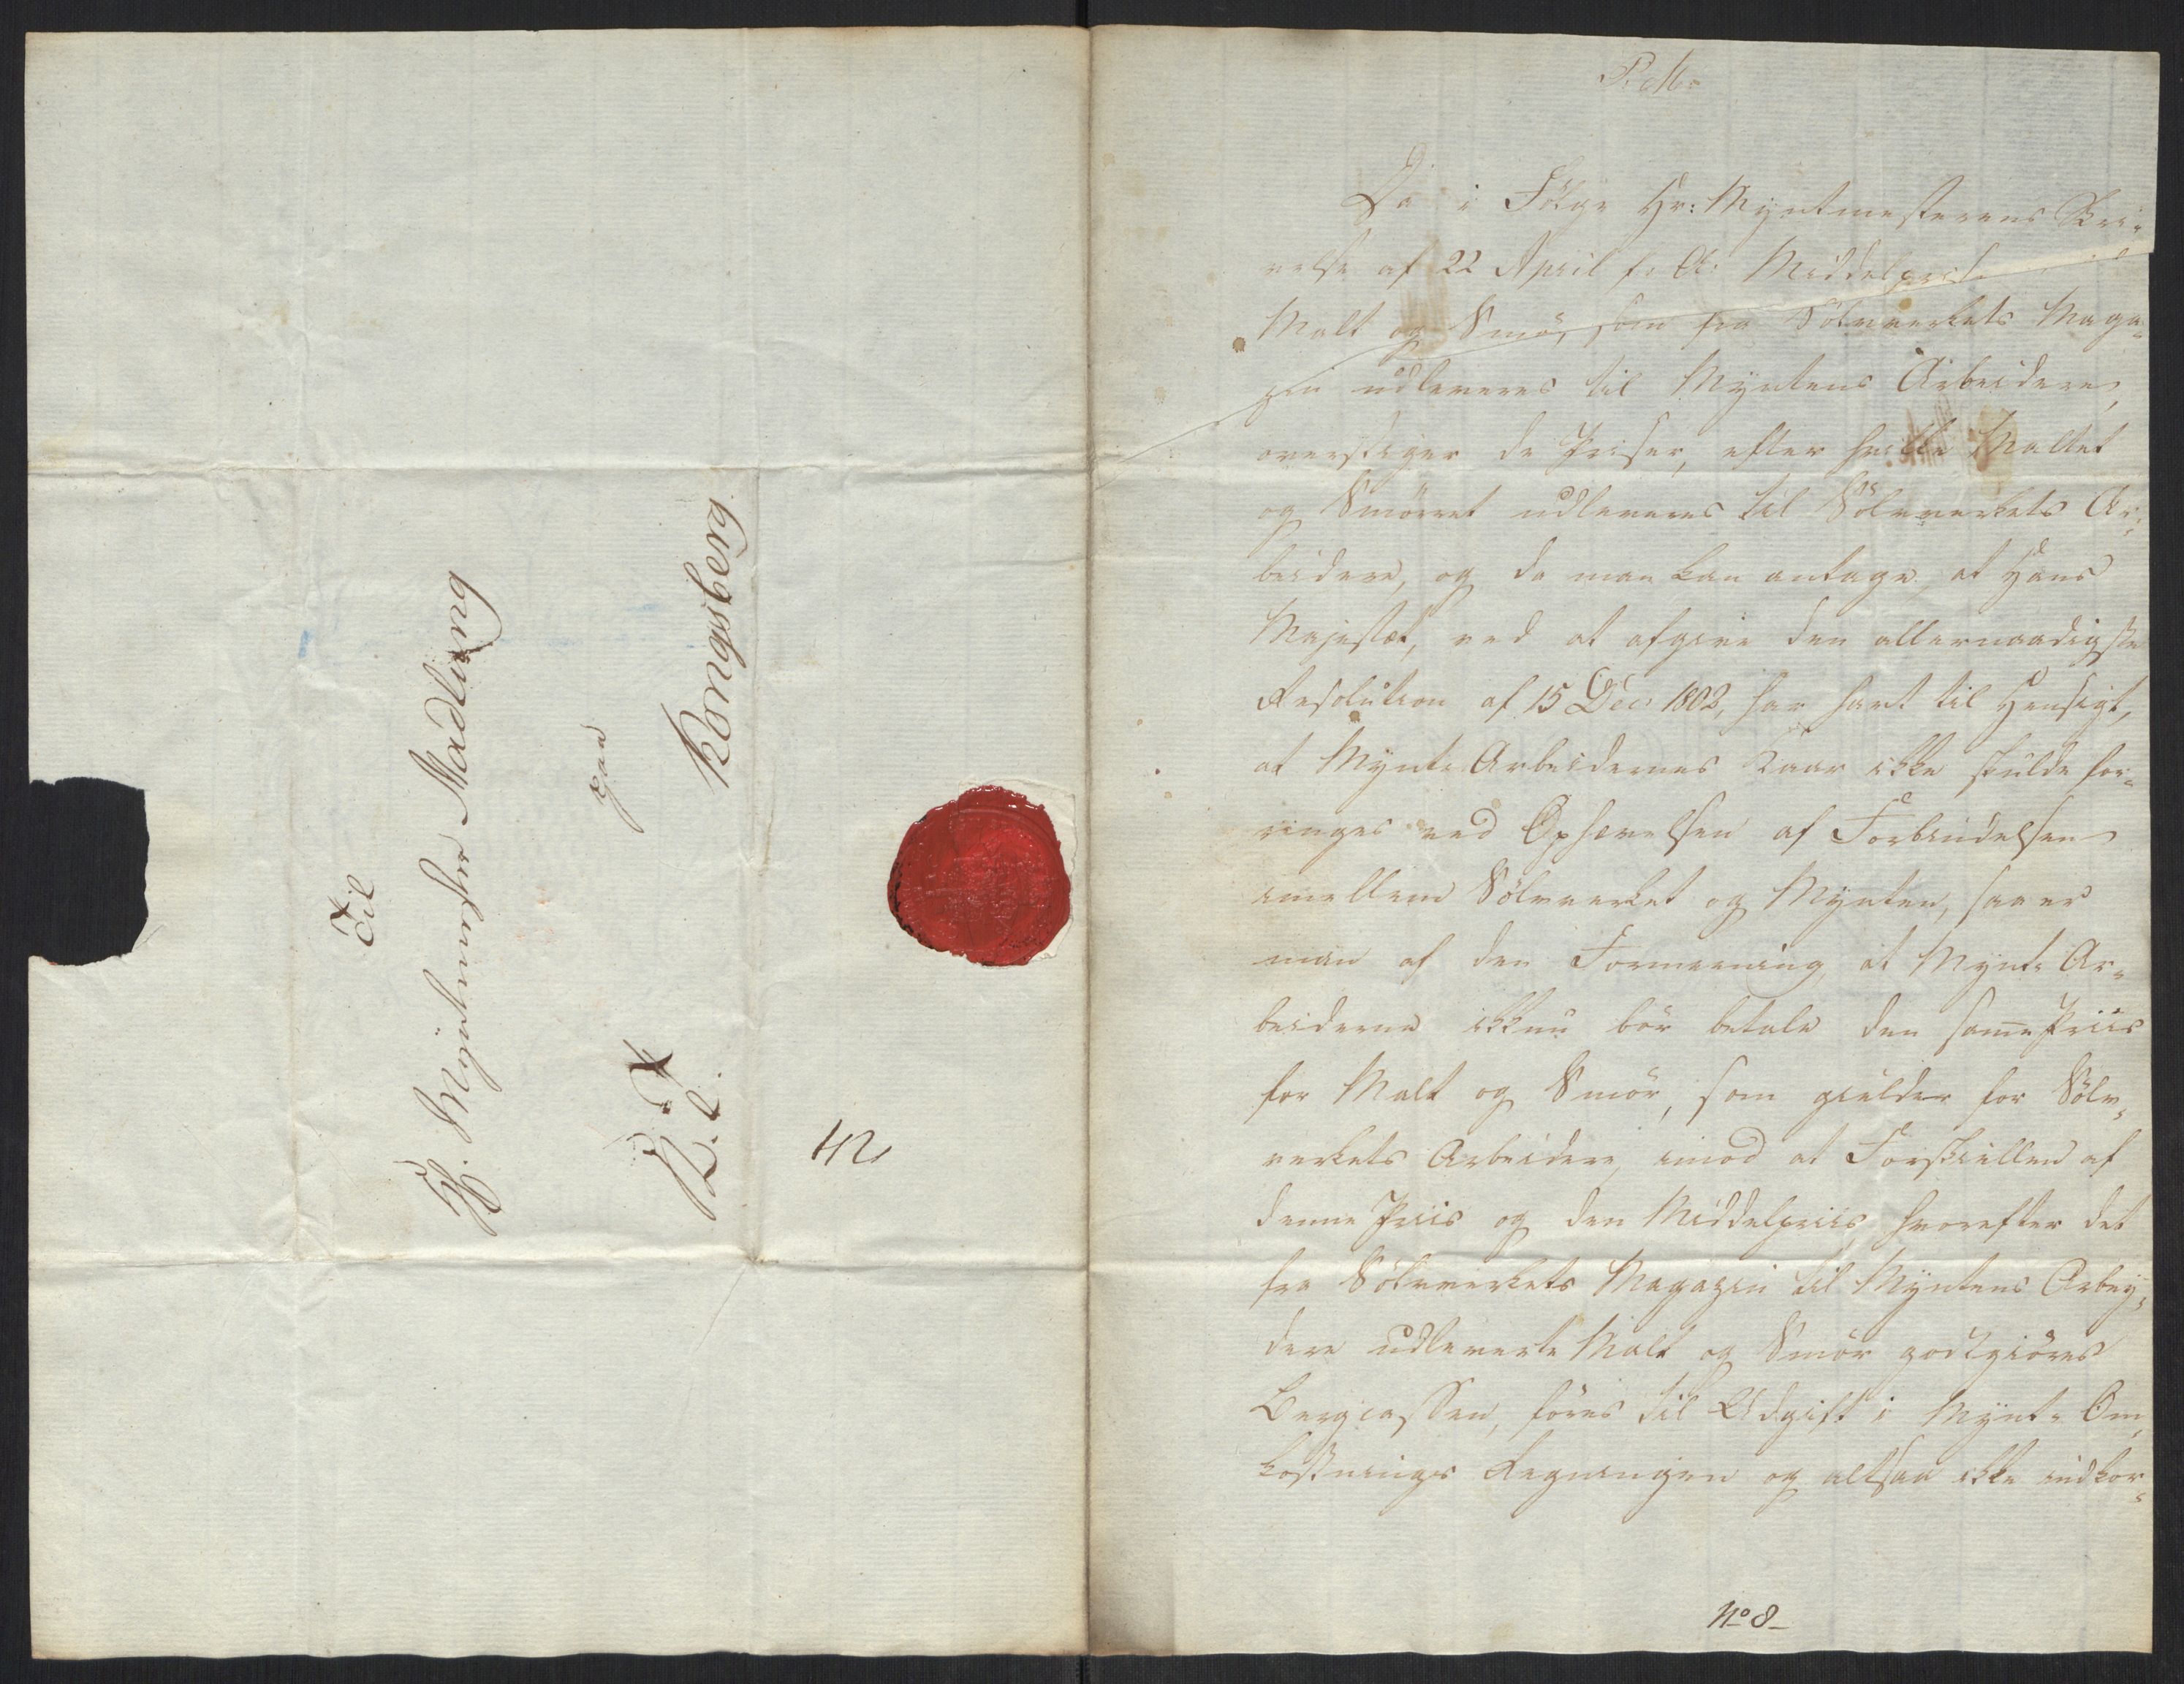 Til
H. Myntmester Madlung
paa
Kongsberg
K. T.
42
P. M.
Da i Fölge Hr: Myntmesterens Skri-
velse af 22 April f. A: Middelpriserne
Malt og Smör, som fra Sölvverkets Maga-
zin udleveres til Myntens Arbeidere,
overstiger de Priser, efter hvilke Maltet
og Smörret udleveres til Sölvverkets Ar-
beidere, og da man kan antage, at Hans
Majestæt, ved at afgive den allernaadigste
Resolution af 15 Dec: 1802, har havt til Hensigt,
at Mynt-Arbeidernes Kaar ikke skulde for-
ringes ved Ophævelsen af Forbindelsen
imellem Sölvverket og Mynten, saa er
man af den Formeening, at Mynt-Ar-
beiderne ikkun bör betale den same Priis
for Malt og Smör, som gielder for Sölv-
verkets Arbeidere, imod at Forskiellen af
denne Priis og den Middelpriis, hvorefter det
fra Sölvverkets Magazin til Myntens Arbey-
dere udleverte Malt og Smör godtgiöres
Bergcassen, föres til Udgift i Mynt-Om-
kostnings Regningen og altsaa ikke indkor-
No 8